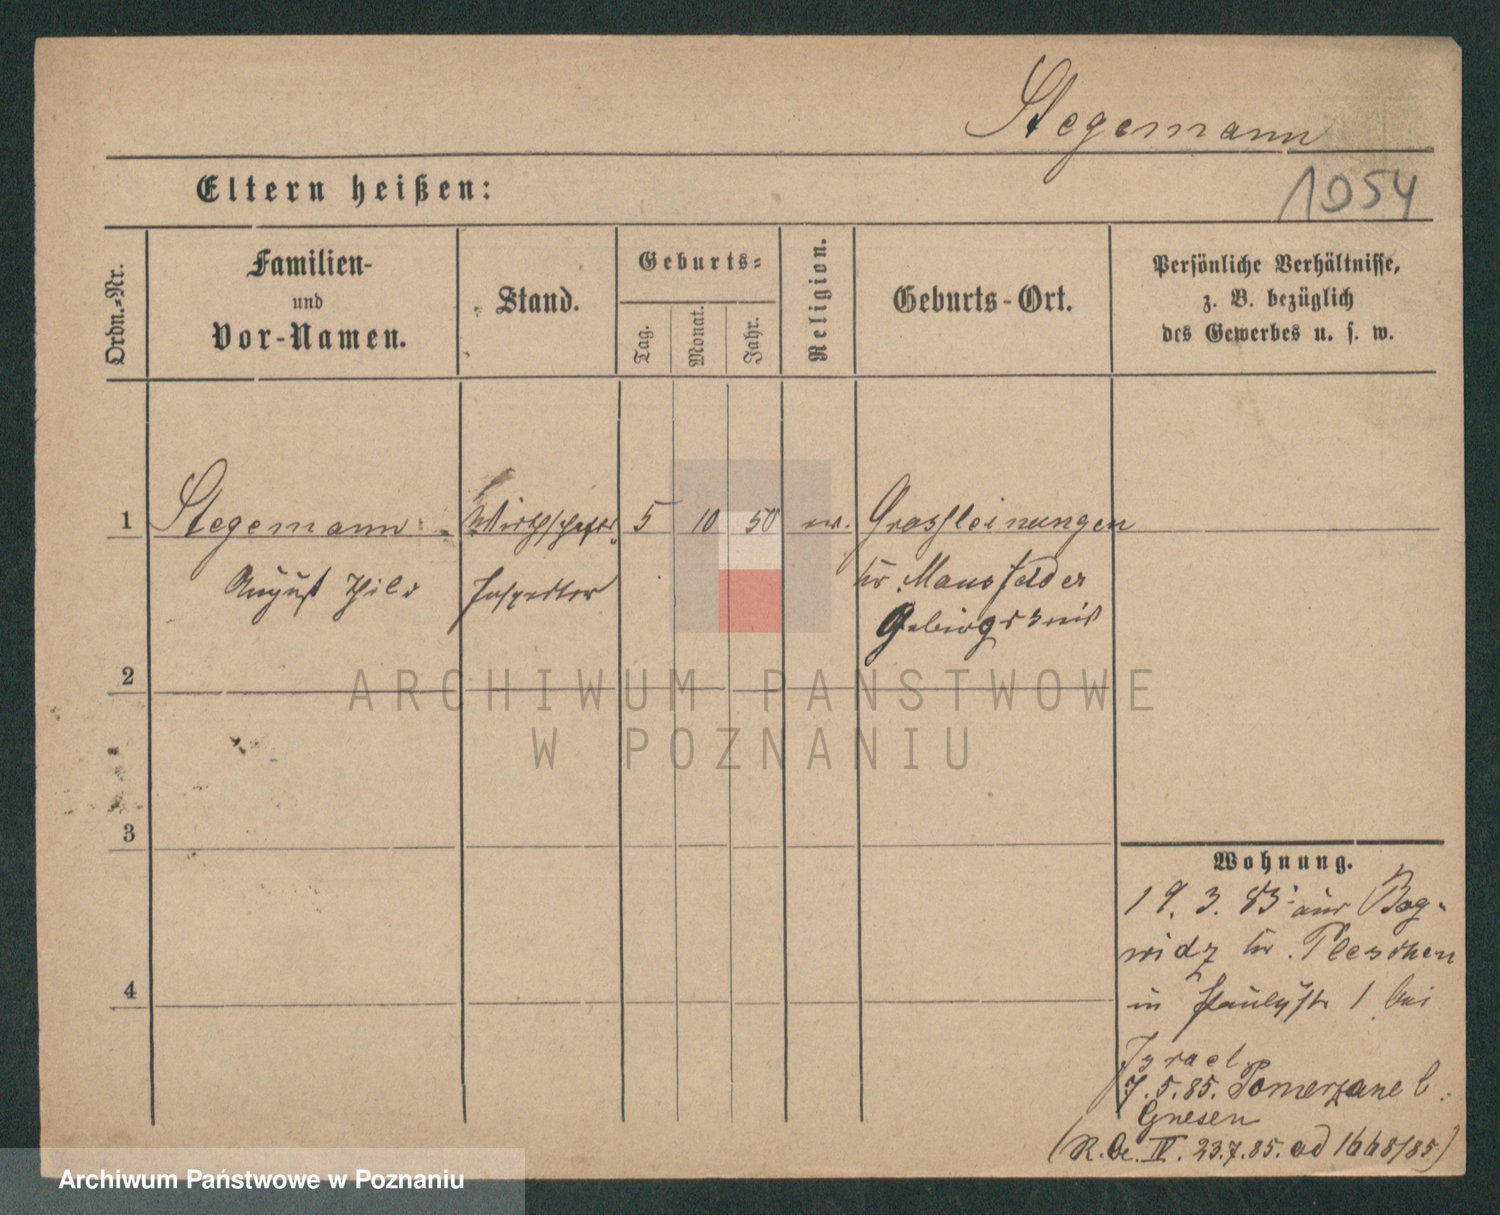 Stegemann
1054
Eltern heißen:
Ordn.-Nr.
Familien-
und
Vor-Namen.
Stand.
Geburts-
Tag.
Monat.
Jahr.
Religion.
Geburts-Ort.
Persönliche Verhältnisse,
z. B. bezüglich
des Gewerbes u. s. w.
1 Stegemann Wirthschafts 5 10 50 ev. Grossleinungen
August Thilo Inspektor Kr. Mansfelder
Gebirgskreis
2
3
4
Wohnung.
19. 3. 83 aus Bog-
widz Kr. Pleschen
in Paulystr 1 bei
Israel
7. 5. 85. Pomerzane b.
Gnesen
IV. 23.7.85. ad 1668/85)
ARCHIWUM PAŃSTWOWE
W POZNANIU
Archiwum Państwowe w Poznaniu